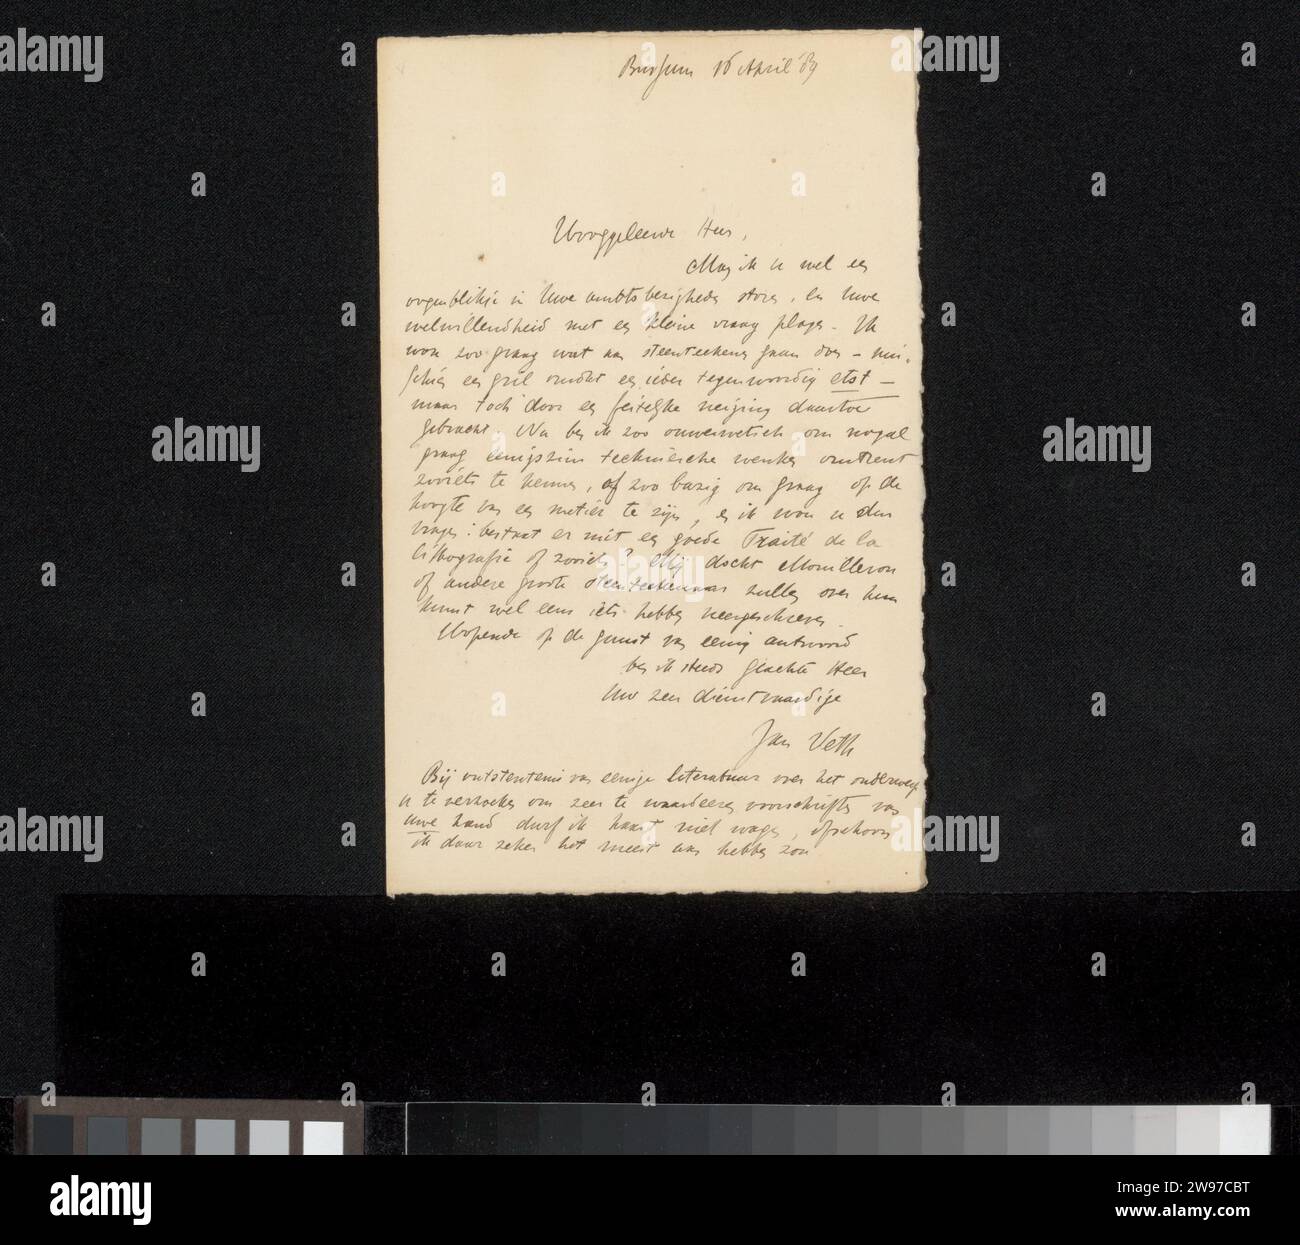 Bussum 16 April '89
Hooggeleerde Heer,
Mag ik u wel een
oogenblikje in Uwe ambtsbezigheden storen, en Uwe
welwillendheid met een kleine vraag plagen. Ik
wou zoo graag wat aan steenteekenen gaan doen – mis-
schien een gril omdat een ieder tegenwoordig etst –
maar toch door een feitelijke neiging daartoe
gebracht. Nu ben ik zoo onwetend om nogal
graag eenigszins technische wenken omtrent
zooiets te kennen, of zoo bazig om graag op de
hoogte van een metier te zijn, en ik wou u dus
vragen: bestaat er niet een goede Traité de la
lithografie of zooiets? Mij dacht Mouilleron
of andere groote steenteekenaars zullen over hun
kunst wel eens iets hebben neergeschreven.
Hopende op de gunst van eenig antwoord
ben ik steeds geachte Heer
Uw zeer dienstvaardige
Jan Veth
Bij ontstentenis van eenige literatuur over het onderwerp
u te verzoeken om zeer te waardeeren voorschriften van
uwe hand durf ik haast niet wagen, ofschoon
ik daar zeker het meest aan hebben zou
alamy
Image ID: 2W97CBT
www.alamy.com